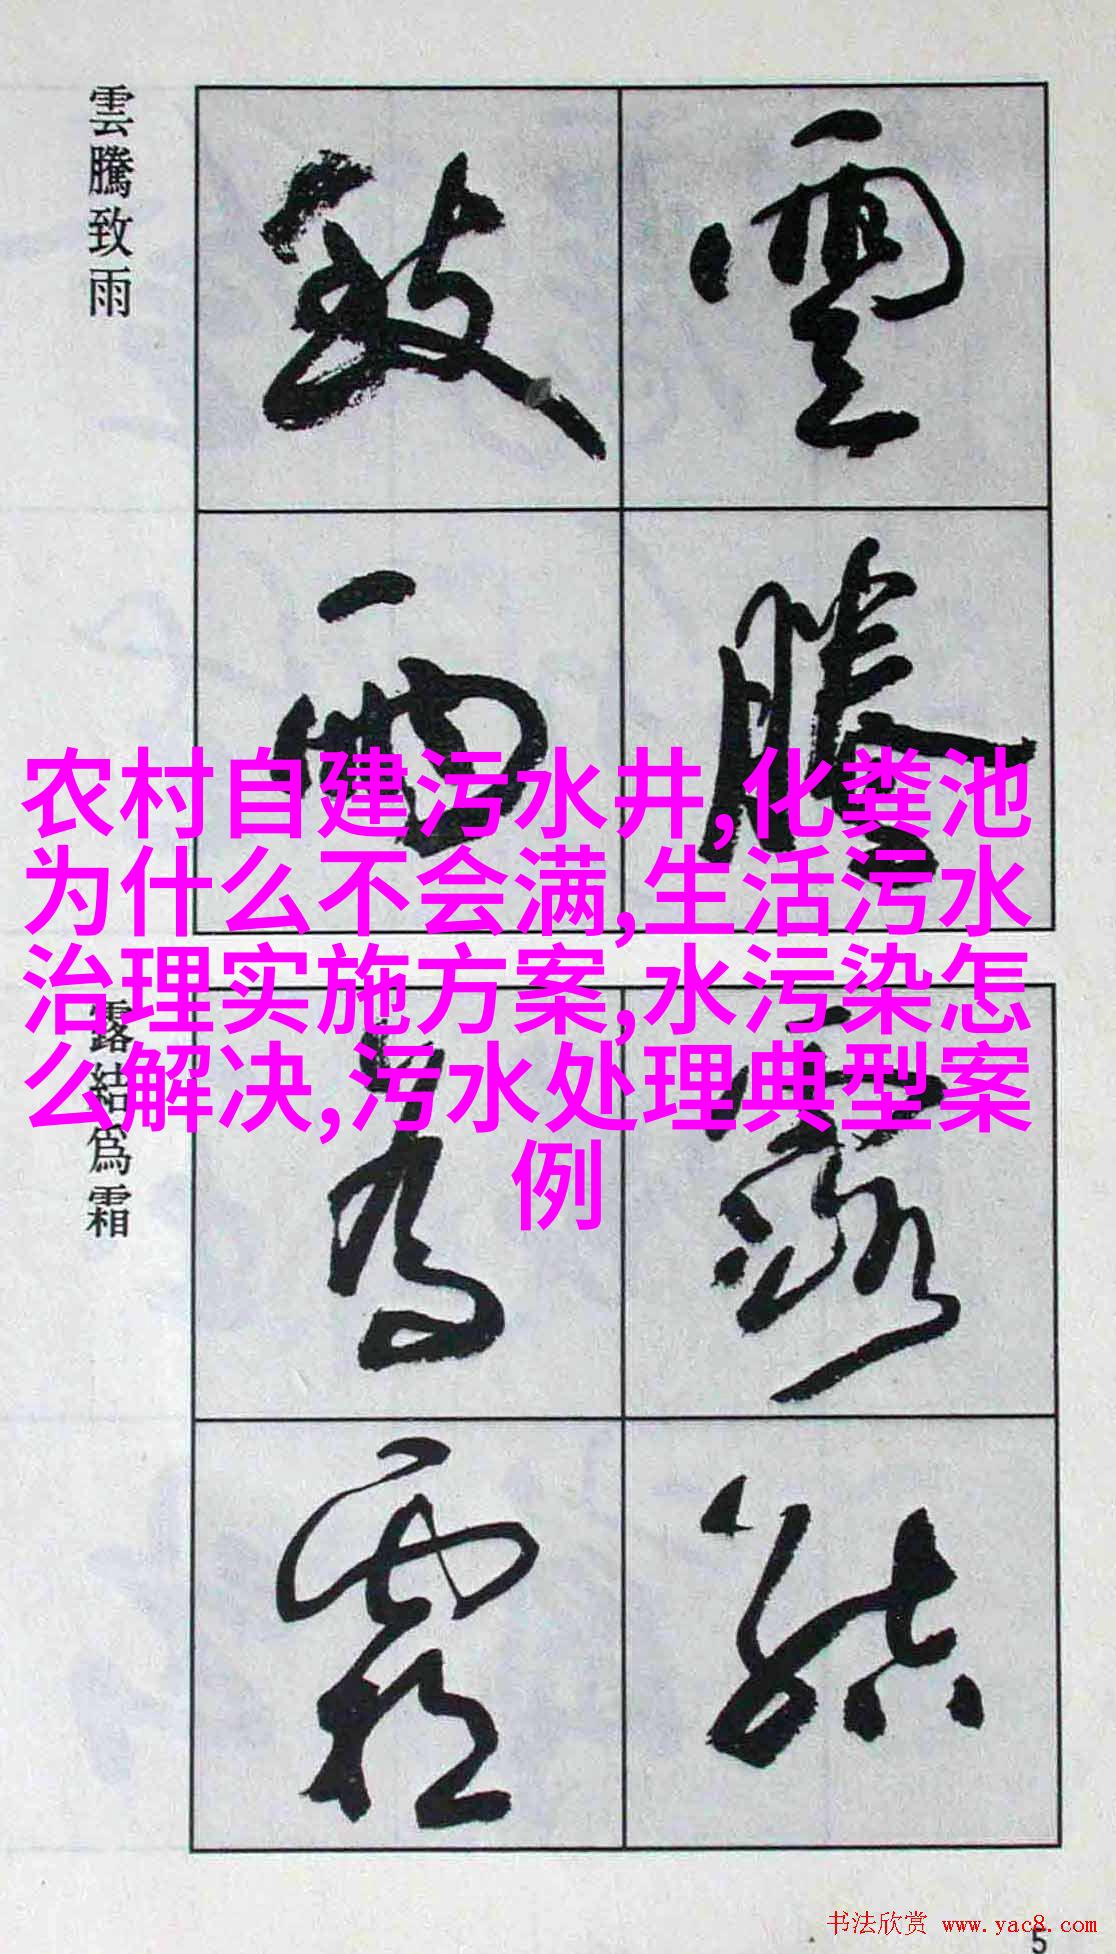 雲騰致雨
雲騰
致雨
農村自建污水井,化粪池
为什么不会满,生活污水
治理实施方案,水污染怎
么解决,污水处理典型案
例
露結爲霜
露結
爲霜
书法欣赏 www.yac8.com
5